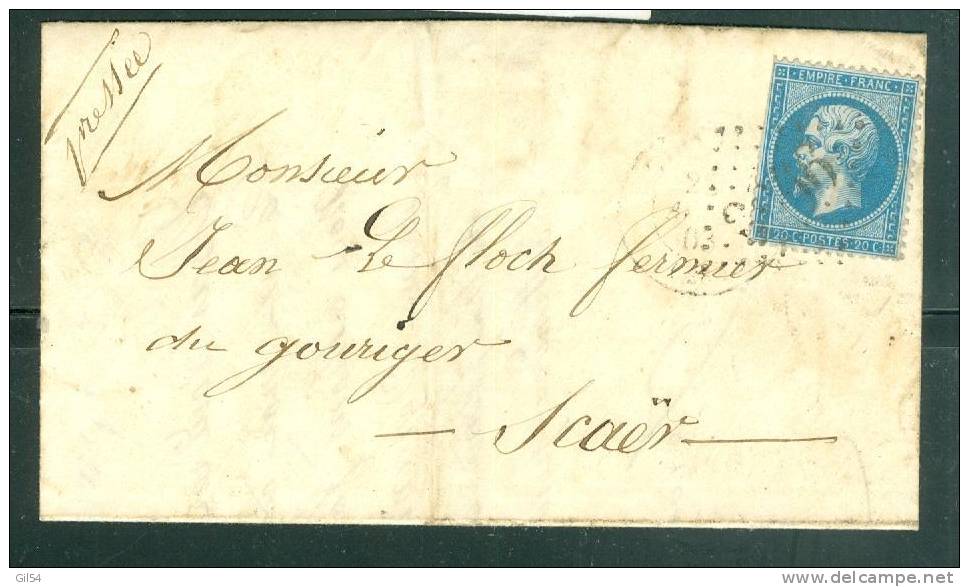 pressée
EMPIRE FRANC
Monsieur
Jean Le floch fermier
du gouriger
20 C POSTES 20 C
— Scaër —
Gil54
www.delcampe.net